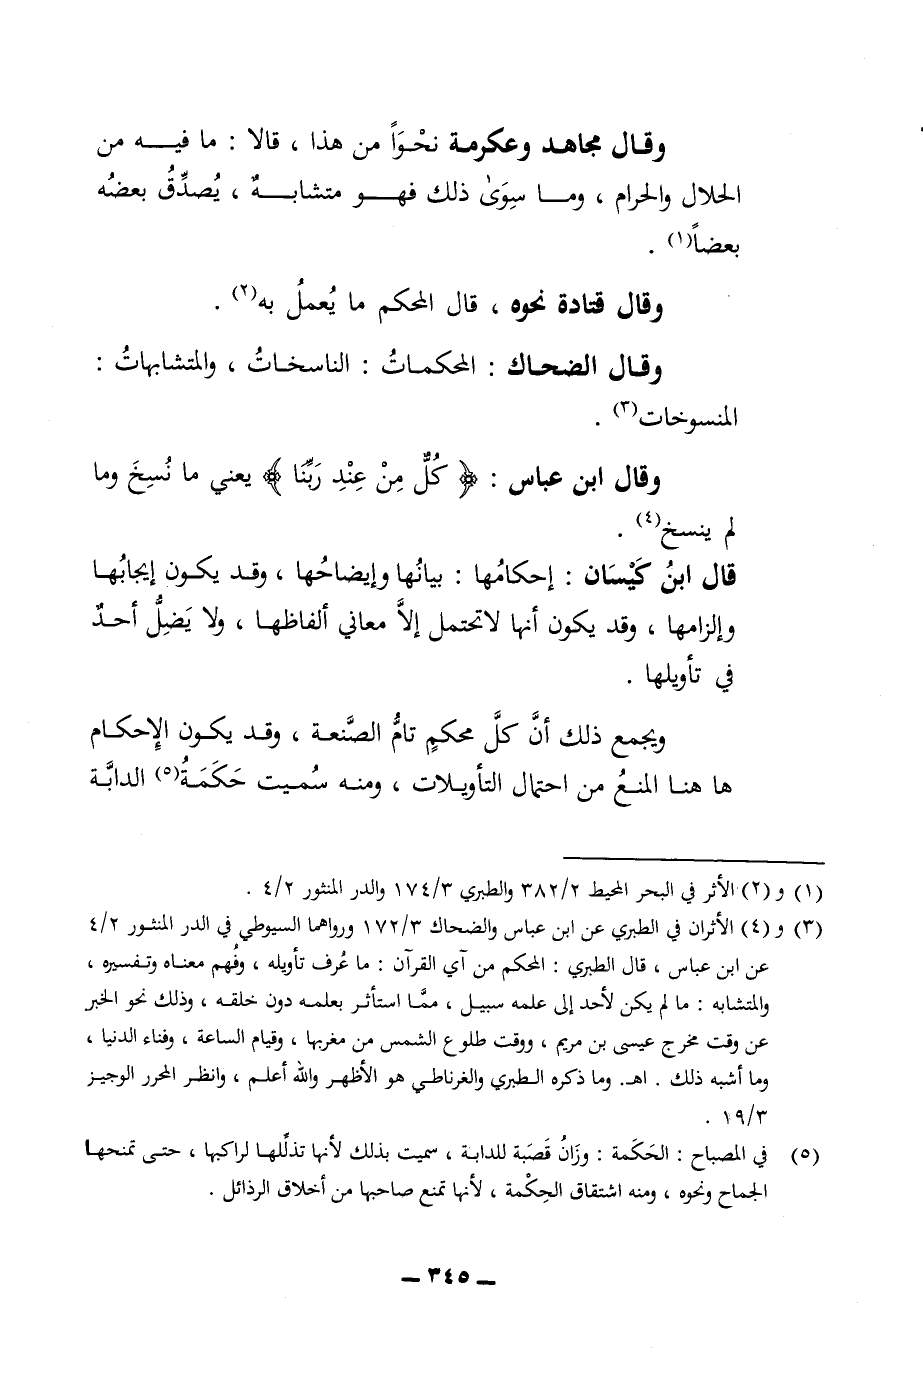 وقال مجاهد وعكرمة نحْوَاً من هذا ، قالا : ما فيه من
الحلال والحرام ، وما سِوَىٰ ذلك فهو متشابهٌ ، يُصدِّقُ بعضُه
بعضاً(١) .
وقال قتادة نحوه ، قال المحكم ما يُعملُ به(٢) .
وقال الضحاك : المحكماتُ : الناسخاتُ ، والمتشابهاتُ :
المنسوخات(٣) .
وقال ابن عباس : ﴿ كُلٌّ مِنْ عِنْدِ رَبِّنَا ﴾ يعني ما نُسِخَ وما
لم ينسخ(٤) .
قال ابنُ كَيْسَان : إحكامُها : بيانُها وإيضاحُها ، وقد يكون إيجابُها
وإلزامها ، وقد يكون أنها لاتحتمل إلاَّ معاني ألفاظها ، ولا يَضِلُّ أحدٌ
في تأويلها .
ويجمع ذلك أنَّ كلَّ محكمٍ تامُّ الصَّنعة ، وقد يكون الإِحكام
ها هنا المنعُ من احتمال التأويلات ، ومنه سُميت حَكَمَةُ(٥) الدابَّة
(١) و (٢) الأثر في البحر المحيط ٣٨٢/٢ والطبري ١٧٤/٣ والدر المنثور ٤/٢ .
(٣) و (٤) الأثران في الطبري عن ابن عباس والضحاك ١٧٢/٣ ورواهما السيوطي في الدر المنثور ٤/٢
عن ابن عباس ، قال الطبري : المحكم من آي القرآن : ما عُرف تأويله ، وفُهم معناه وتفسيره ،
والمتشابه : ما لم يكن لأحد إلى علمه سبيل ، ممَّا استأثر بعلمه دون خلقه ، وذلك نحو الخبر
عن وقت مخرج عيسى بن مريم ، ووقت طلوع الشمس من مغربها ، وقيام الساعة ، وفناء الدنيا ،
وما أشبه ذلك . اهـ. وما ذكره الطبري والغرناطي هو الأظهر والله أعلم ، وانظر المحرر الوجيز
١٩/٣ .
(٥) في المصباح : الحَكَمة : وزَانُ قَصَبة للدابة ، سميت بذلك لأنها تذلِّلها لراكبها ، حتى تمنحها
الجماح ونحوه ، ومنه اشتقاق الحِكْمة ، لأنها تمنع صاحبها من أخلاق الرذائل .
ـ ٣٤٥ ـ